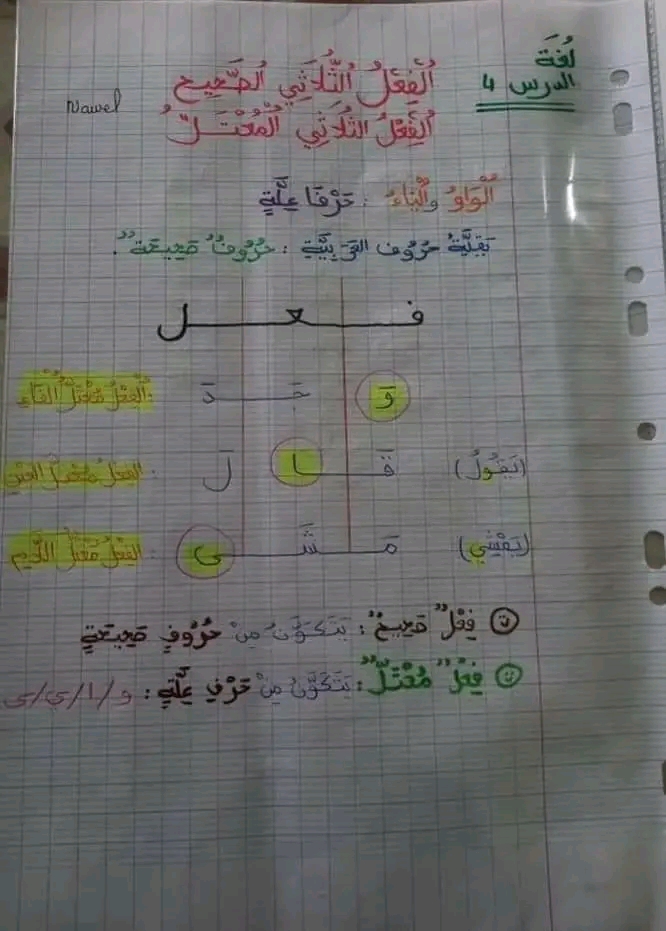 لُغَة
الدرس 4
اُلْفِعْلُ اُلثُّلَاثِي اُلصَّحِيح
Nawel
اُلْفِعْلُ الثُّلَاثِي اُلْمُعْتَـلّ
اُلْوَاوُ واُلْيَاءُ : حَرْفَا عِلَّةٍ
بَقِيَّةُ حُرُوف العَرَبِيَّةِ : حُرُوفٌ صَحِيحَةٌ.
فـعـل
وَ جَـدَ :اُلْفِعْلُ مُعْتَلُّ الْفَاءِ
(يَقُولُ) قَـا لَ :الفِعْلُ مُعْتَلُّ العَيْنِ
(يَمْشِي) مَـشَـى :الفِعْلُ مُعْتَلُّ اللَّامِ
فِعْلٌ صَحِيحٌ: يَتَكَوَّنُ مِنْ حُرُوفٍ صَحِيحَةٍ
فِعْلٌ مُعْتَلٌّ: يَتَكَوَّنُ مِنْ حَرْفِ عِلَّةٍ: و/ا/ي/ى